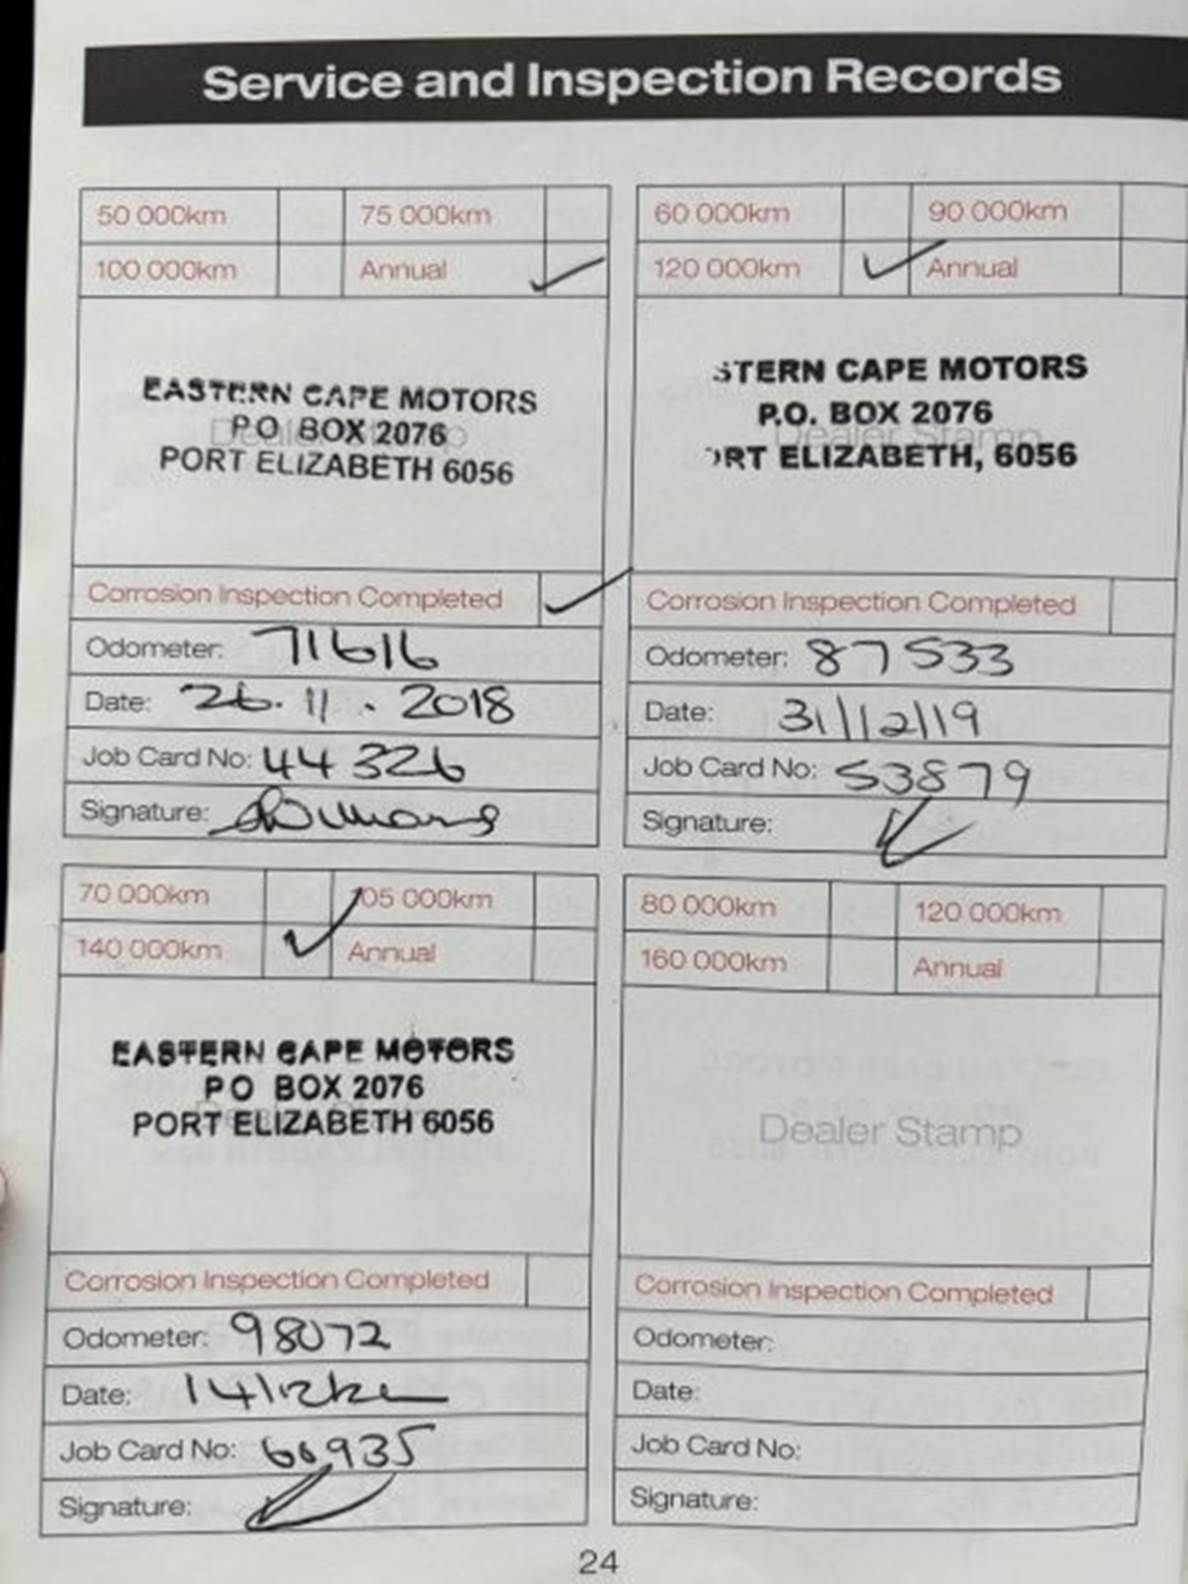 Service and Inspection Records
50 000km 75 000km
100 000km Annual
EASTERN CAPE MOTORS
P O BOX 2076
PORT ELIZABETH 6056
Corrosion Inspection Completed
Odometer: 71616
Date: 26.11.2018
Job Card No: 44326
Signature:
60 000km 90 000km
120 000km Annual
STERN CAPE MOTORS
P.O. BOX 2076
ORT ELIZABETH, 6056
Dealer Stamp
Corrosion Inspection Completed
Odometer: 87533
Date: 31/12/19
Job Card No: 53879
Signature:
70 000km 05 000km
140 000km Annual
EASTERN CAPE MOTORS
P O BOX 2076
PORT ELIZABETH 6056
Corrosion Inspection Completed
Odometer: 98072
Date:
Job Card No: 60935
Signature:
80 000km 120 000km
160 000km Annual
Dealer Stamp
Corrosion Inspection Completed
Odometer:
Date:
Job Card No:
Signature:
24